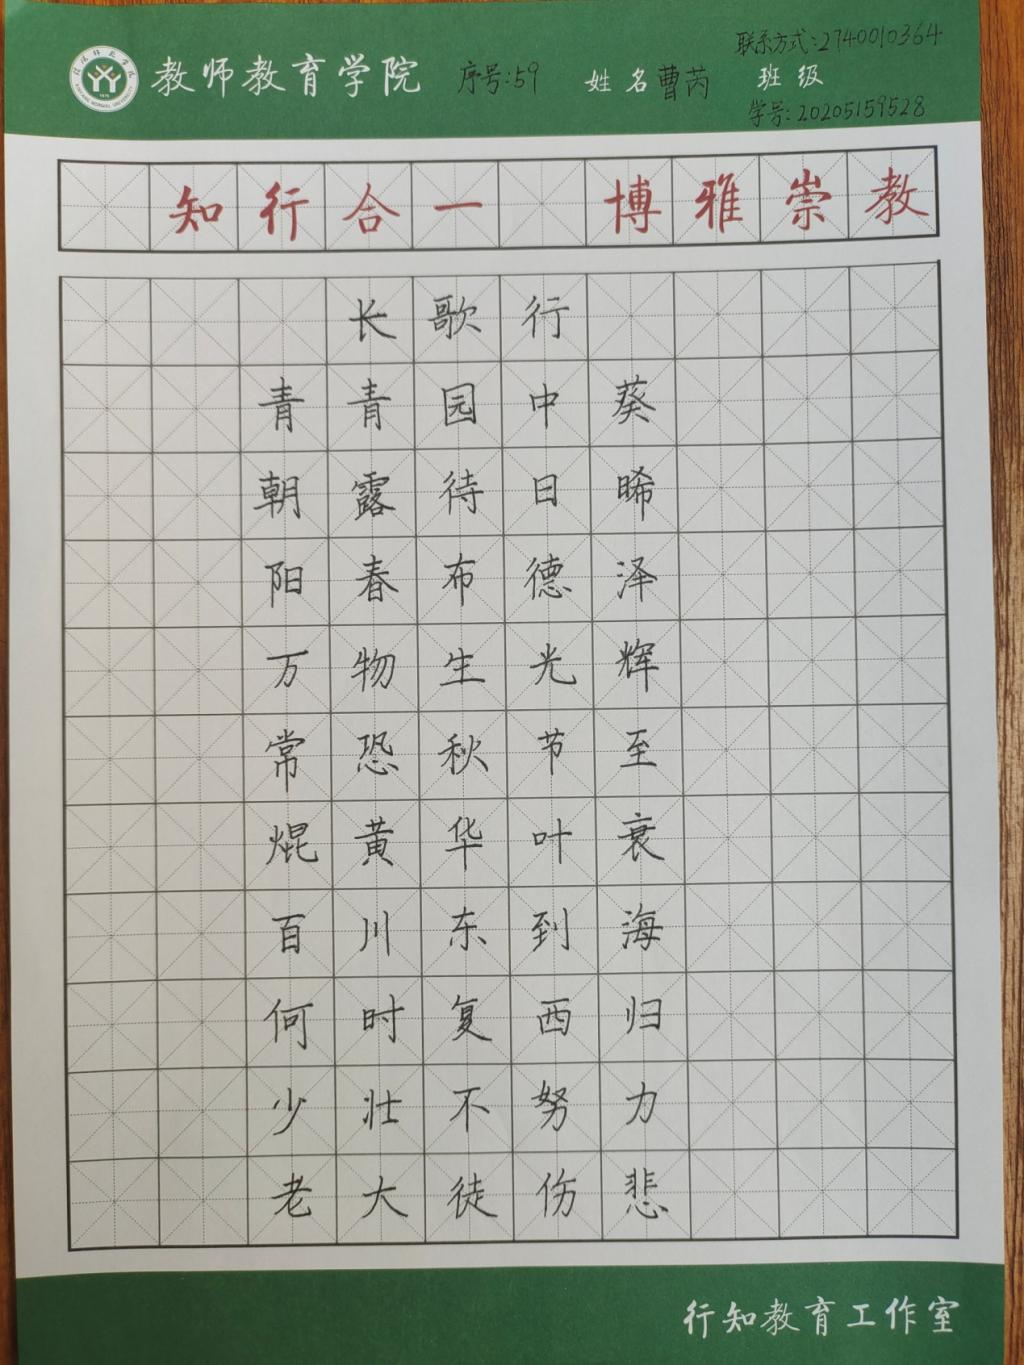 联系方式:2740010364
教师教育学院 序号:59 姓名 曹芮 班级
学号:20205159528
知行合一 博雅崇教
长歌行
青青园中葵
朝露待日晞
阳春布德泽
万物生光辉
常恐秋节至
焜黄华叶衰
百川东到海
何时复西归
少壮不努力
老大徒伤悲
行知教育工作室